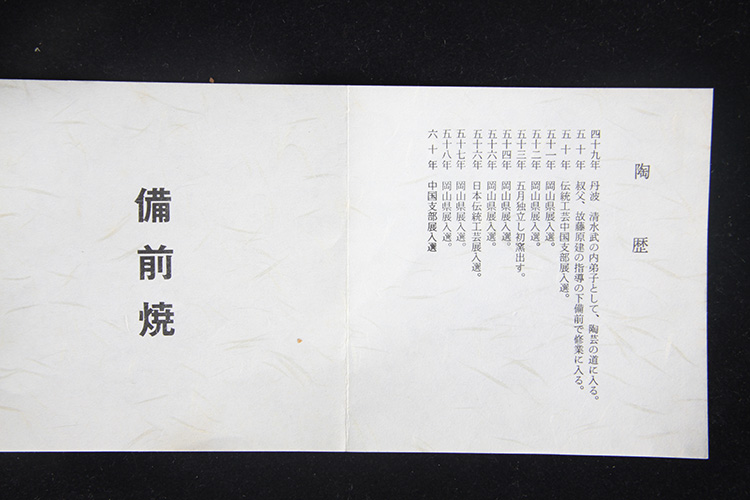 陶歴
四十九年 丹波 清水武の内弟子として、陶芸の道に入る。
五十年 叔父、故藤原建の指導の下備前で修業に入る。
五十年 伝統工芸中国支部展入選。
五十一年 岡山県展入選。
五十二年 岡山県展入選。
五十三年 五月独立し初窯出す。
五十四年 岡山県展入選。
五十六年 岡山県展入選。
五十六年 日本伝統工芸展入選。
五十七年 岡山県展入選。
五十八年 岡山県展入選。
六十年 中国支部展入選
備前焼